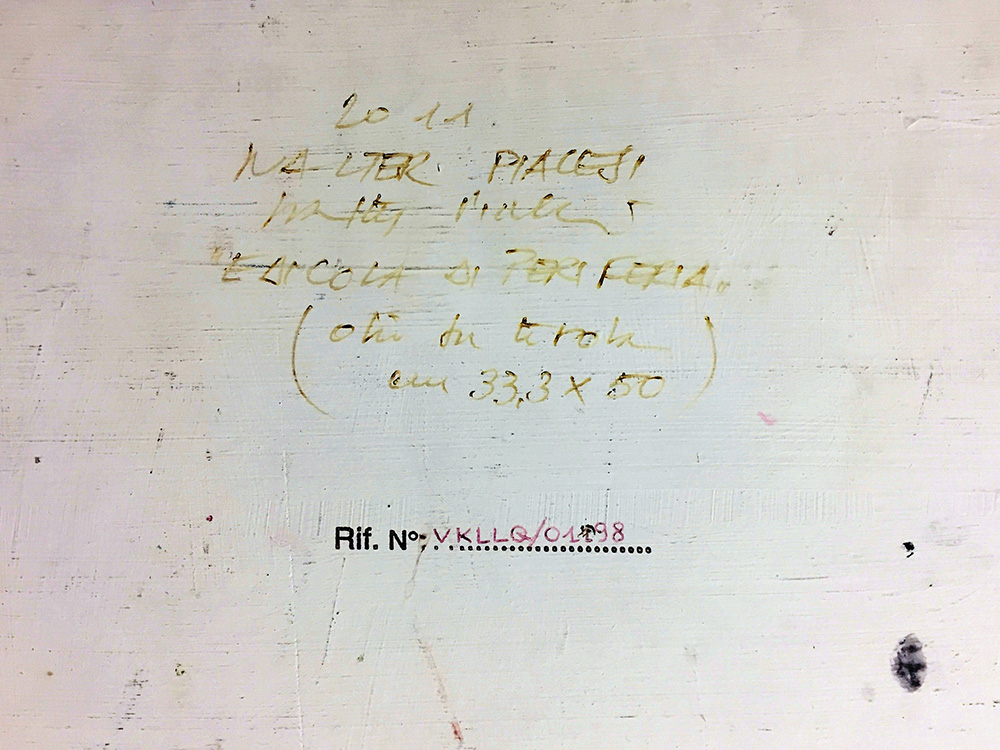 2011
WALTER PIACESI
"EDICOLA DI PERIFERIA"
(olio su tavola
cm 33,3 x 50)
Rif. N°: VKLLQ/01